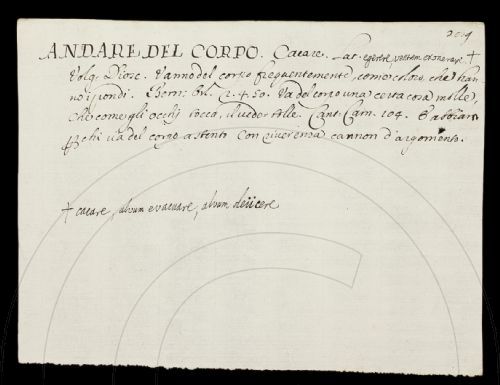 ANDARE DEL CORPO. Cacare. Lat. egerere, ventrem exonerare †
Volg. Diosc. Vanno del corpo frequentemente, come coloro, che han-
no i pondi. Bern. Orl. 2. 4. 50. Va del corpo una certa cosa molle,
Che come gli occhi tocca, il veder tolle. Cant. Carn. 104. E abbiam
p chi va del corpo a stento Con riverenza cannon d'argento.
† cacare, alvum evacuare, alvum deiicere